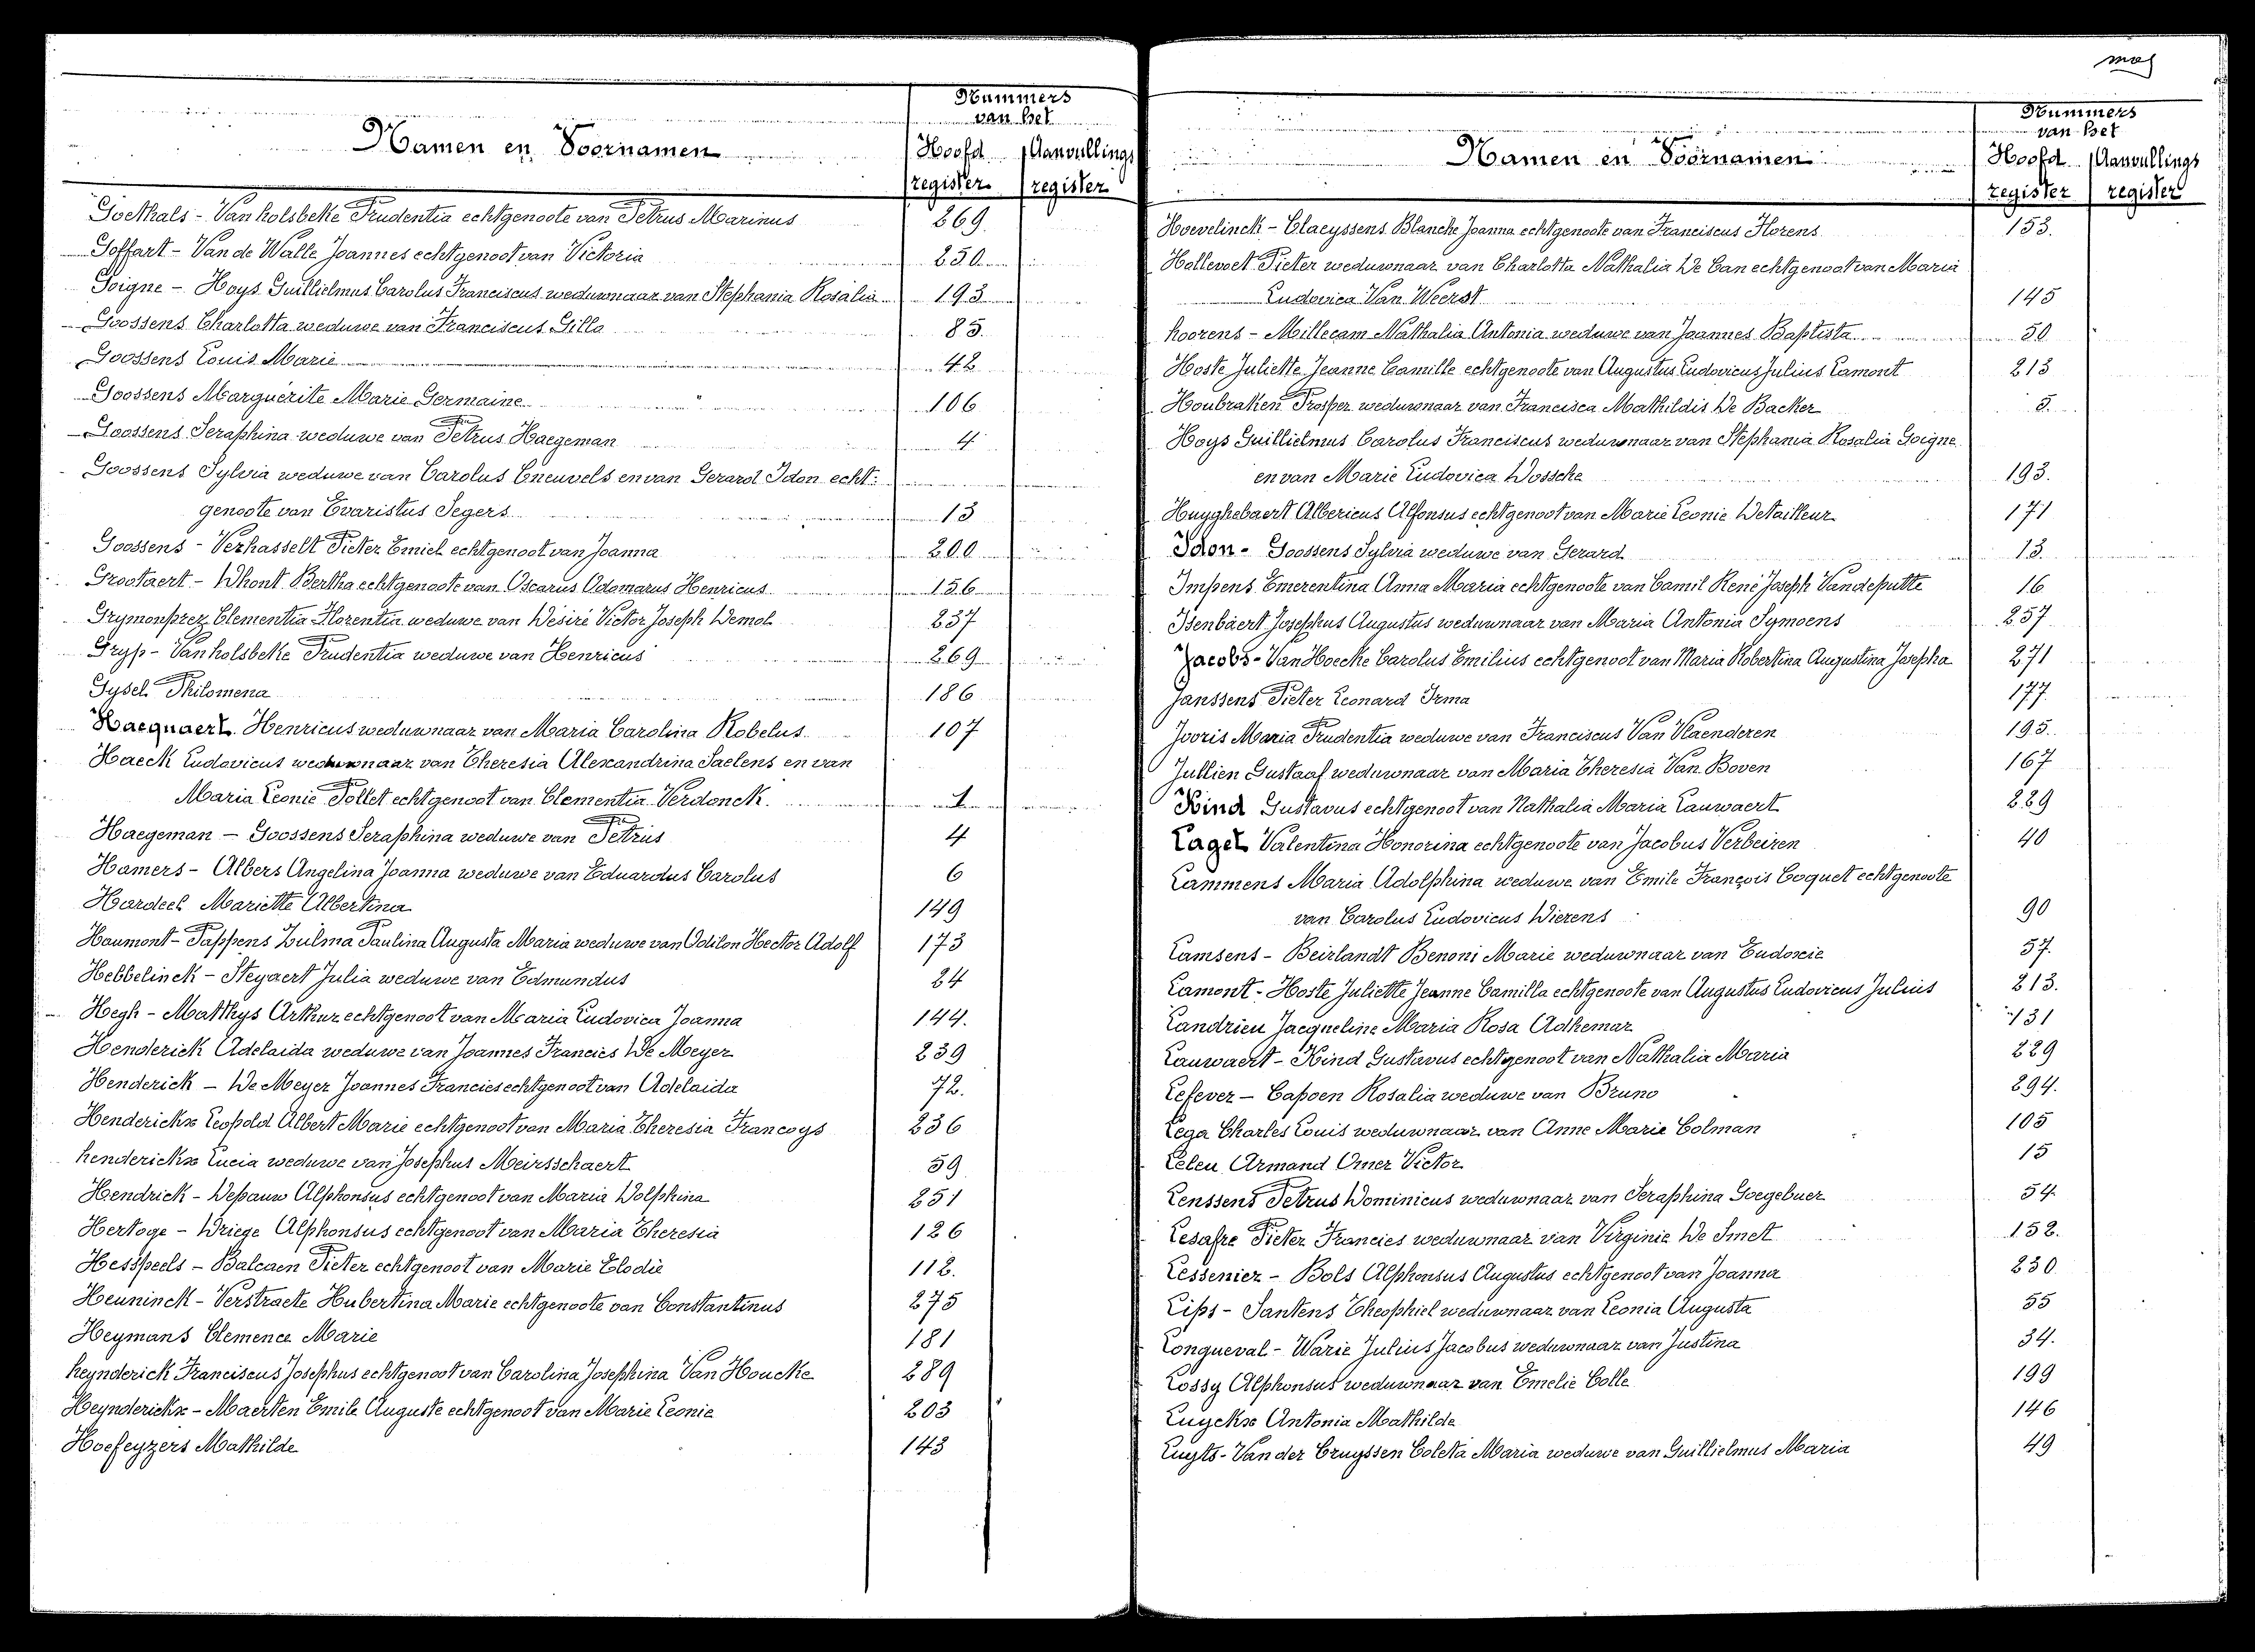 Namen en Voornamen
Nummers
van het
Hoofd Aanvullings
register register
Goethals - Vanholsbeke Prudentia echtgenoote van Petrus Marinus 269.
Goffart - Van de Walle Joannes echtgenoot van Victoria 250.
Goigne - Hoys Guillielmus Carolus Franciscus weduwnaar van Stephania Rosalia 193
Goossens Charlotta weduwe van Franciscus Gilla 85.
Goossens Louis Marie 42
Goossens Marguérite Marie Germaine 106
Goossens Seraphina weduwe van Petrus Haegeman 4
Goossens Sylvia weduwe van Carolus Cneuvels en van Gerard Idon echt-
genoote van Evaristus Segers 13
Goossens - Verhasselt Pieter Emiel echtgenoot van Joanna 200
Grootaert - Dhont Bertha echtgenoote van Oscarus Adomarus Henricus 156
Grymonprez Clementia Florentia weduwe van Désiré Victor Joseph Demol 237
Gryp - Vanholsbeke Prudentia weduwe van Henricus 269
Gysel Philomena 186
Hacquaert Henricus weduwnaar van Maria Carolina Robelus 107
Haeck Ludovicus weduwnaar van Theresia Alexandrina Saelens en van
Maria Leonie Pollet echtgenoot van Clementia Verdonck. 1
Haegeman - Goossens Seraphina weduwe van Petrus 4
Hamers - Albers Angelina Joanna weduwe van Eduardus Carolus 6
Hardeel Mariette Albertina 149
Haumont - Pappens Zulma Paulina Augusta Maria weduwe van Odilon Hector Adolf 173
Hebbelinck - Steyaert Julia weduwe van Edmundus 24
Hegh - Matthys Arthur echtgenoot van Maria Ludovica Joanna 144.
Henderick Adelaida weduwe van Joannes Francies De Meyer 239
Henderick - De Meyer Joannes Francies echtgenoot van Adelaida 72.
Henderickx Leopold Albert Marie echtgenoot van Maria Theresia Francoys 236
Henderickx Lucia weduwe van Josephus Meirsschaert 59
Hendrick - Depauw Alphonsus echtgenoot van Maria Dolphina 251
Hertoge - Driege Alphonsus echtgenoot van Maria Theresia 126
Hesspeels - Balcaen Pieter echtgenoot van Marie Elodie 112.
Heuninck - Verstraete Hubertina Marie echtgenoote van Constantinus 275
Heymans Clemence Marie 181
Heynderick Franciscus Josephus echtgenoot van Carolina Josephina Van Houcke 289
Heynderickx - Maerten Emile Auguste echtgenoot van Marie Leonie 203
Hoefeyzers Mathilde 143
Namen en Voornamen
Nummers
van het
Hoofd Aanvullings
register register
Hoevelinck - Claeyssens Blanche Joanna echtgenoote van Franciscus Florens 153.
Hollevoet Pieter weduwnaar van Charlotta Nathalia De Can echtgenoot van Maria
Ludovica Van Weerst 145
Hoorens - Millecam Nathalia Antonia weduwe van Joannes Baptista 50
Hoste Juliette Jeanne Camille echtgenoote van Augustus Ludovicus Julius Lamont 213
Houbraken Prosper weduwnaar van Francisca Mathildis De Backer 5.
Hoys Guillielmus Carolus Franciscus weduwnaar van Stephania Rosalia Goigne
en van Marie Ludovica Dossche 193.
Huyghebaert Albericus Alfonsus echtgenoot van Marie Leonie Detailleur 171
Idon - Goossens Sylvia weduwe van Gerard 13.
Impens Emerentina Anna Maria echtgenoote van Camil René Joseph Vandeputte 16
Isenbaert Josephus Augustus weduwnaar van Maria Antonia Symoens 257
Jacobs - Van Hoecke Carolus Emilius echtgenoot van Maria Robertina Augustina Josepha 271
Janssens Pieter Leonard Irma 177
Jooris Maria Prudentia weduwe van Franciscus Van Vlaenderen 195.
Jullien Gustaaf weduwnaar van Maria Theresia Van Boven 167
Kind Gustavus echtgenoot van Nathalia Maria Lauwaert 229
Lagel Valentina Honorina echtgenoote van Jacobus Verbeiren 40
Lammens Maria Adolphina weduwe van Emile François Coquet echtgenoote
van Carolus Ludovicus Dierens 90
Lamsens - Beirlandt Benoni Marie weduwnaar van Eudoxie 57.
Lamont - Hoste Juliette Jeanne Camilla echtgenoote van Augustus Ludovicus Julius 213.
Landrieu Jacqueline Maria Rosa Adhemar 131
Lauwaert - Kind Gustavus echtgenoot van Nathalia Maria 229
Lefever - Capoen Rosalia weduwe van Bruno 294.
Lega Charles Louis weduwnaar van Anne Marie Colman 105
Leleu Armand Omer Victor 15
Lenssens Petrus Dominicus weduwnaar van Seraphina Goegebuer 54.
Lesafre Pieter Francies weduwnaar van Virginie De Smet 152.
Lessenier - Bols Alphonsus Augustus echtgenoot van Joanna 230
Lips - Santens Theophiel weduwnaar van Leonia Augusta 55
Longueval - Warie Julius Jacobus weduwnaar van Justina 34.
Lossy Alphonsus weduwnaar van Emelie Colle 199
Luyckx Antonia Mathilde 146
Luyts - Van der Cruyssen Coleta Maria weduwe van Guillielmus Maria 49